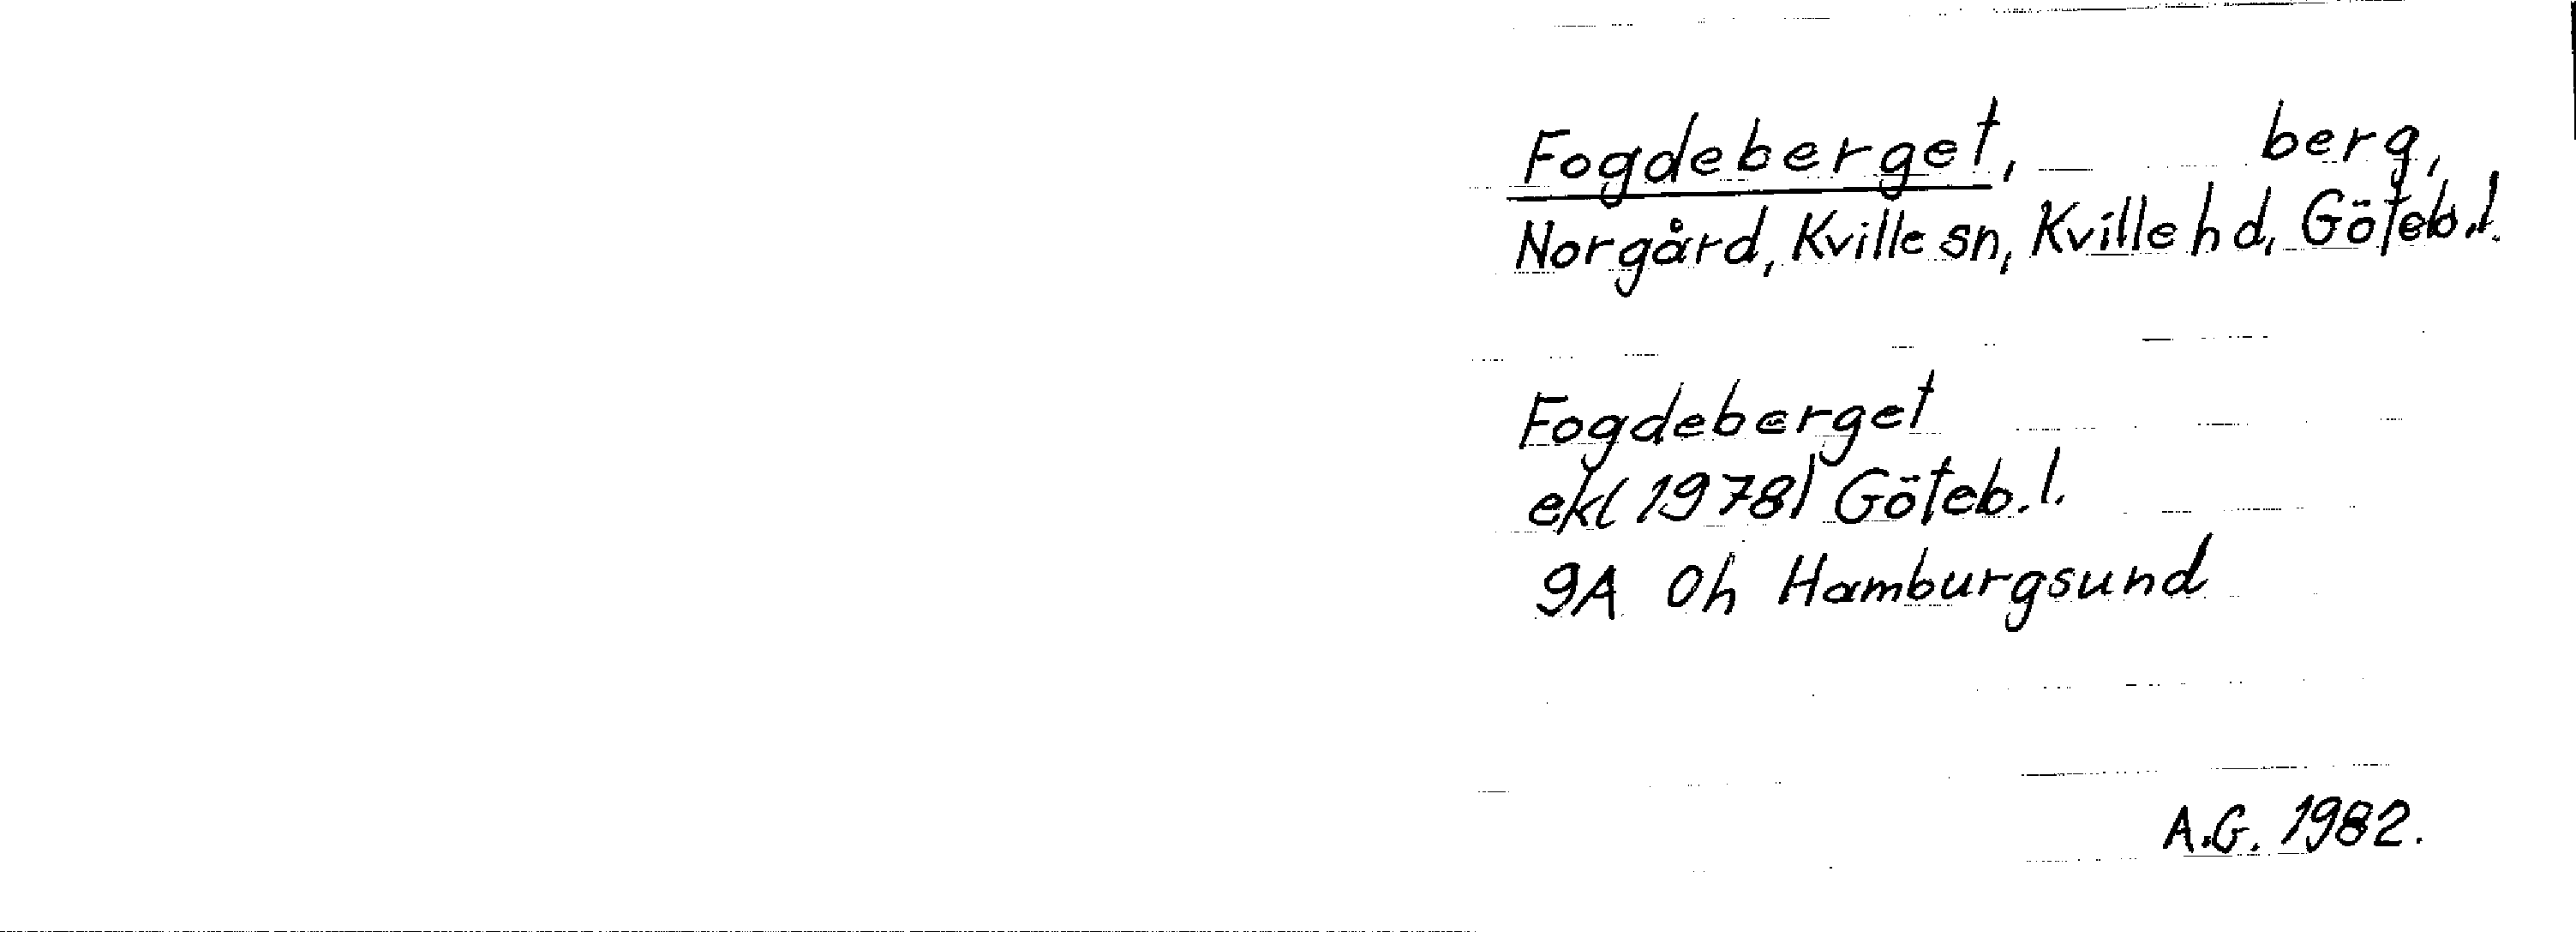 Fogdeberget, berg,
Norgård, Kville sn, Kville hd, Göteb.l.
Fogdeberget
ek(1978) Göteb.l.
9A 0h Hamburgsund
A.G. 1982.